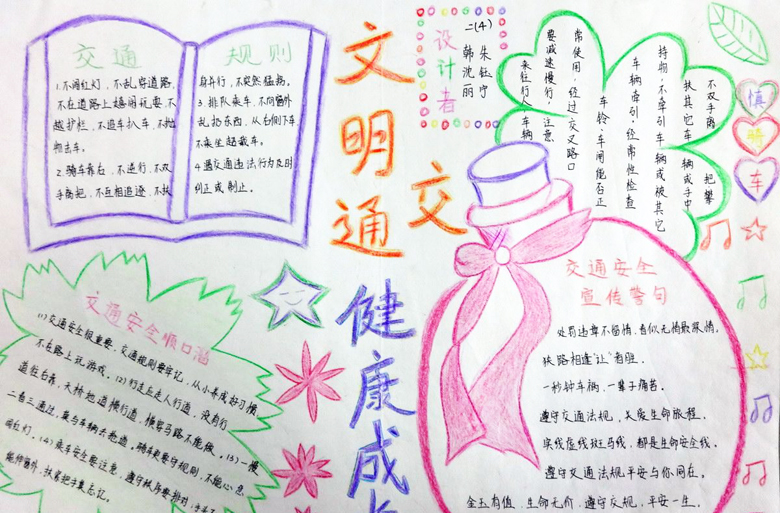 交通 规则
1.不闯红灯，不乱穿道路，
不在道路上嬉闹玩耍，不
越护栏，不追车扒车，不抛
物击车。
2.骑车靠右，不逆行，不双
手离把，不互相追逐，不扶
身并行，不突然猛拐。
3.排队乘车，不向窗外
乱扔东西，从右侧下车
不乘坐超载车。
4.遇交通违法行为及时
纠正或制止。
文明交通
健康成长
二(4)
朱钰宁
韩沈丽
设计者
不双手离把攀
扶其它车辆或手中
持物，不牵引车辆或被其它
车辆牵引，经常性检查
车铃，车闸能否正
常使用，经过交叉路口
要减速慢行，注意
来往行人车辆
慎骑车
交通安全顺口溜
(1)交通安全很重要，交通规则要牢记，从小养成好习惯，
不在路上玩游戏。(2)行走应走人行道，没有行
道往右靠，天桥地道横行道，横穿马路不能做。(3)一慢
二看三通过，莫与车辆去抢道，骑车更要守规则，不能心急
闯红灯。(4)乘车安全要注意，遵守秩序要排好，手头不
能伸窗外，扶紧把手莫忘记。
交通安全
宣传警句
处罚违章不留情，看似无情最深情。
狭路相逢"让"者胜。
一秒钟车祸，一辈子痛苦。
遵守交通法规，关爱生命旅程。
实线虚线斑马线，都是生命安全线。
遵守交通法规平安与你同在。
金玉有值，生命无价，遵守交规，平安一生。